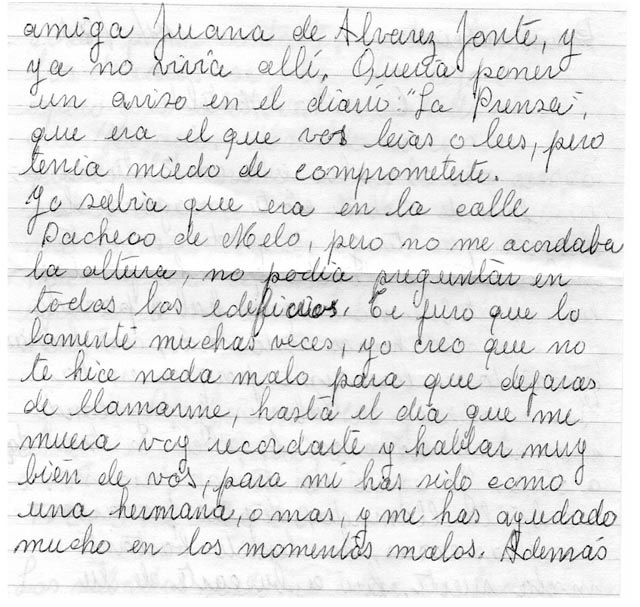 amiga Juana de Alvarez Jonte, y
ya no vivía allí. Quería poner
un aviso en el diario: "La Prensa",
que era el que vos leías o lees, pero
tenia miedo de comprometerte.
Yo sabia que era en la calle
Pacheco de Melo, pero no me acordaba
la altura, no podía preguntar en
todos los edificios. Te juro que lo
lamenté muchas veces, yo creo que no
te hice nada malo para que dejaras
de llamarme, hasta el día que me
muera voy recordarte y hablar muy
bién de vos, para mí has sido como
una hermana, o mas, y me has ayudado
mucho en los momentos malos. Además